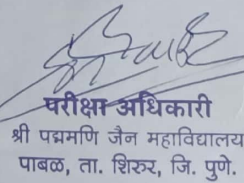 परीक्षा अधिकारी
श्री पद्ममणि जैन महाविद्यालय
पाबळ, ता. शिरूर, जि. पुणे.